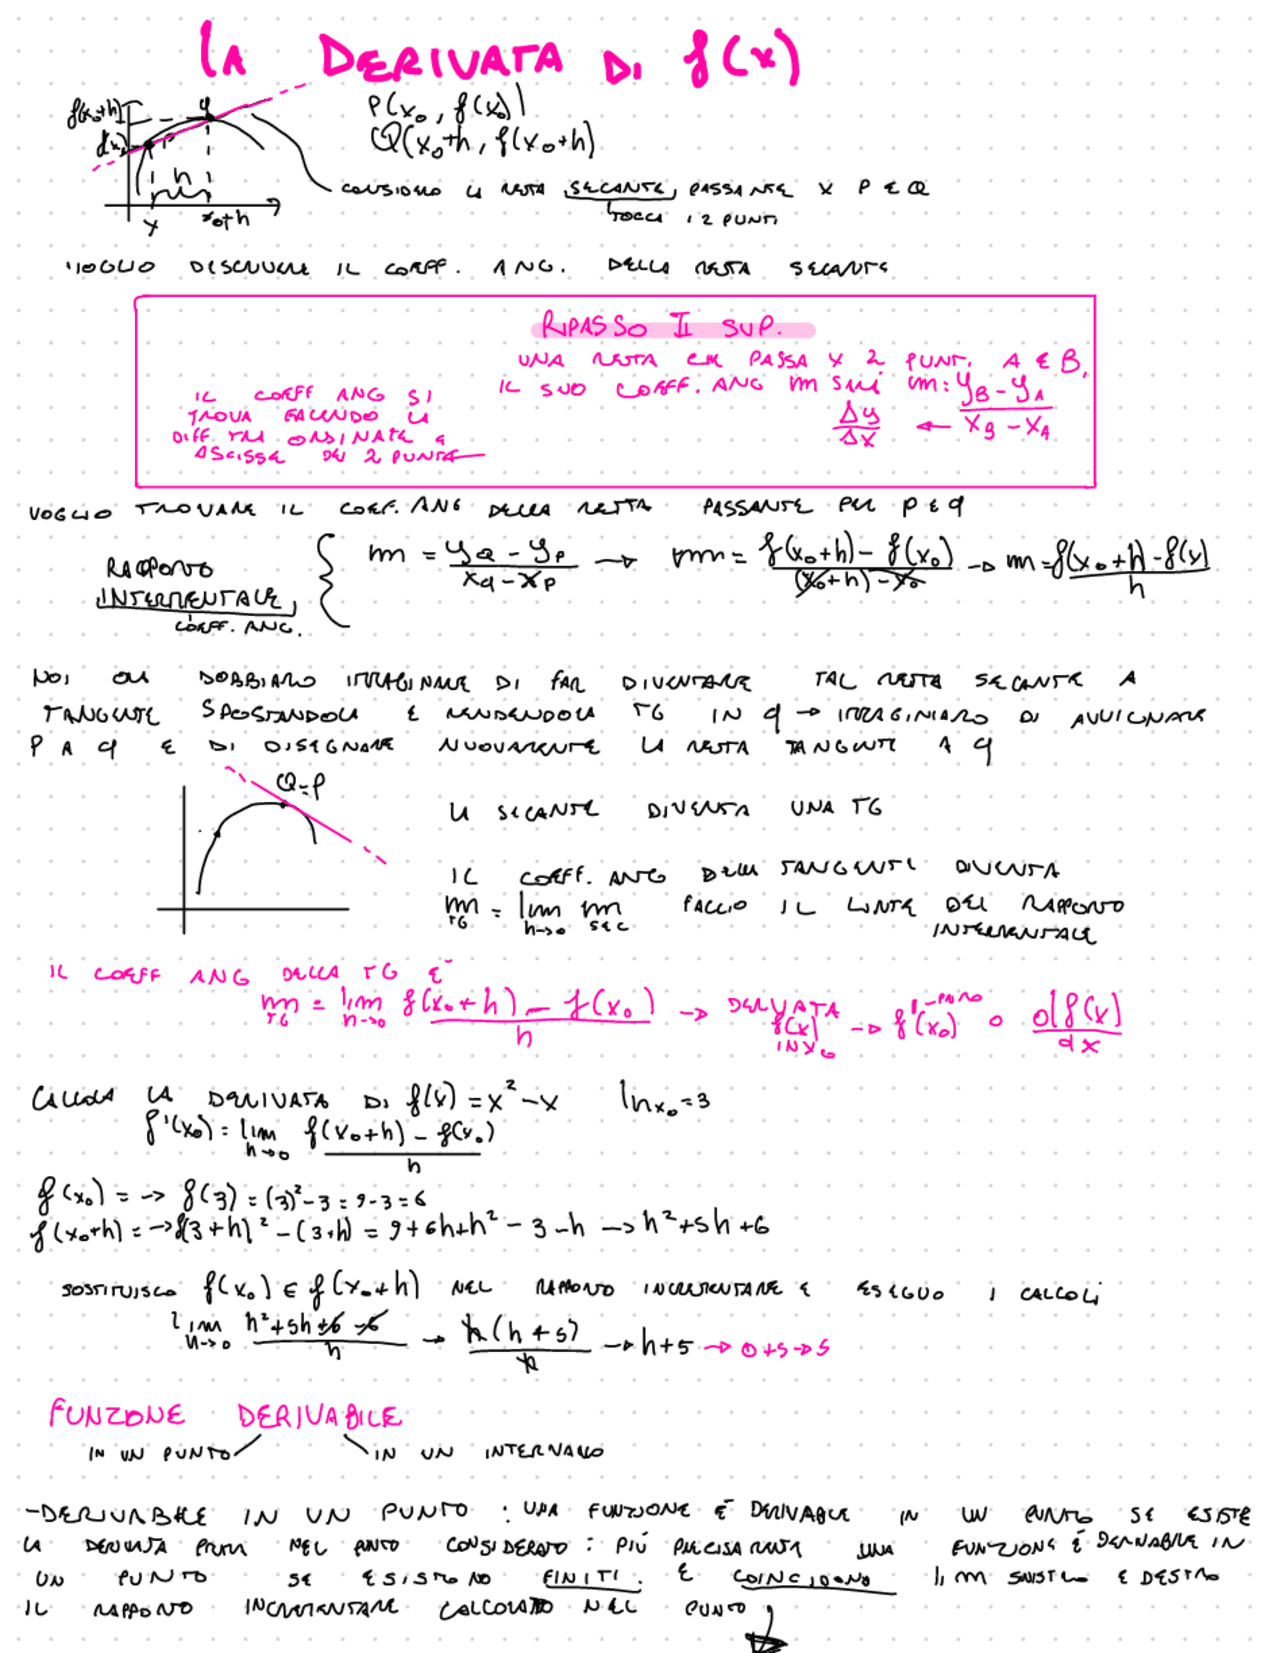 LA DERIVATA DI f(x)
f(x₀+h)
Q
P(x₀, f(x₀))
Q(x₀+h, f(x₀+h)
f(x₀)
P
h
CONSIDERO LA RETTA SECANTE, PASSANTE X P E Q
TOCCA I 2 PUNTI
x
x₀+h
VOGLIO DESCRIVERE IL COEFF. ANG. DELLA RETTA SECANTE
RIPASSO II SUP.
UNA RETTA CHE PASSA X 2 PUNTI, A E B,
IL SUO COEFF. ANG m SARÀ m: (yB - yA)/(xB - xA)
Δy/Δx ←
IL COEFF ANG SI
TROVA FACENDO LA
DIFF TRA ORDINATE E
ASCISSE DEI 2 PUNTI
VOGLIO TROVARE IL COEF. ANG DELLA RETTA PASSANTE PER P E Q
RAPPORTO
INCREMENTALE,
COEFF. ANG.
m = (yQ - yP)/(xQ - xP) → m = (f(x₀+h) - f(x₀))/((x₀+h) - x₀) → m = (f(x₀+h) - f(x))/h
NOI ORA DOBBIAMO IMMAGINARE DI FAR DIVENTARE TAL RETTA SECANTE A
TANGENTE SPOSTANDOLA E RENDENDOLA TG IN Q → IMMAGINIAMO DI AVVICINARE
P A Q E DI DISEGNARE NUOVAMENTE LA RETTA TANGENTE A Q
Q=P
LA SECANTE DIVENTA UNA TG
IL COEFF. ANG DELLA TANGENTE DIVENTA
m TG = lim h→0 m SEC FACCIO IL LIMITE DEL RAPPORTO
INCREMENTALE
IL COEFF ANG DELLA TG È
m TG = lim h→0 (f(x₀+h) - f(x₀))/h → DERIVATA f(x) IN X₀ → f'(x₀) O df(x)/dx
CALCOLA LA DERIVATA DI f(x) = x² - x In x₀=3
f'(x₀) = lim h→0 (f(x₀+h) - f(x₀))/h
f(x₀) = → f(3) = (3)² - 3 = 9 - 3 = 6
f(x₀+h) = → f(3+h)² - (3+h) = 9+6h+h² - 3 - h → h²+5h+6
SOSTITUISCO f(x₀) E f(x₀+h) NEL RAPPORTO INCREMENTARE E ESEGUO I CALCOLI
lim h→0 (h²+5h+6-6)/h → h(h+5)/h → h+5 → 0+5→5
FUNZIONE DERIVABILE
IN UN PUNTO IN UN INTERVALLO
-DERIVABILE IN UN PUNTO: UNA FUNZIONE È DERIVABILE IN UN PUNTO SE ESISTE
LA DERIVATA PRIMA NEL PUNTO CONSIDERATO: PIÙ PRECISAMENTE UNA FUNZIONE È DERIVABILE IN
UN PUNTO SE ESISTONO FINITI E COINCIDONO lim SINISTRO E DESTRO
IL RAPPORTO INCREMENTARE CALCOLATO NEL PUNTO